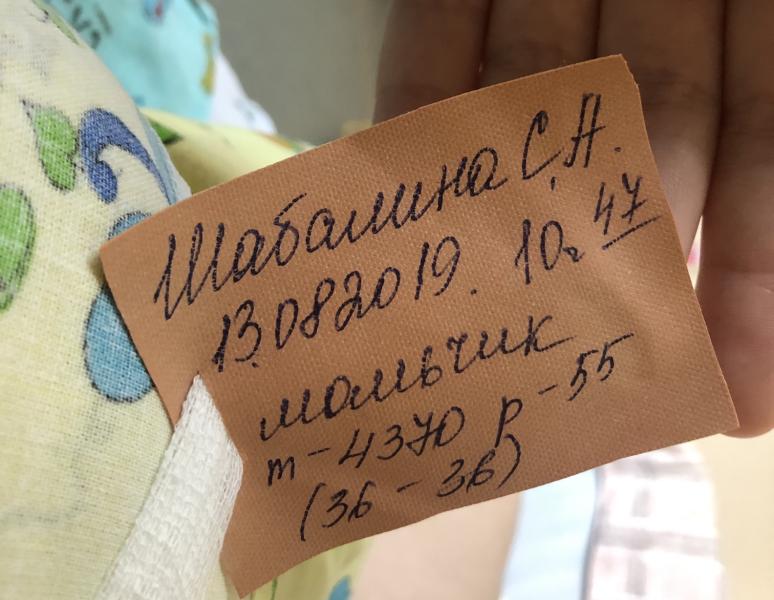 Шабалина С.А.
13.08.2019. 10ч 47
мальчик
m-4370 р-55
(36-36)